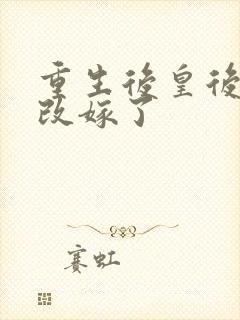 重生後皇後
改嫁了
賽虹